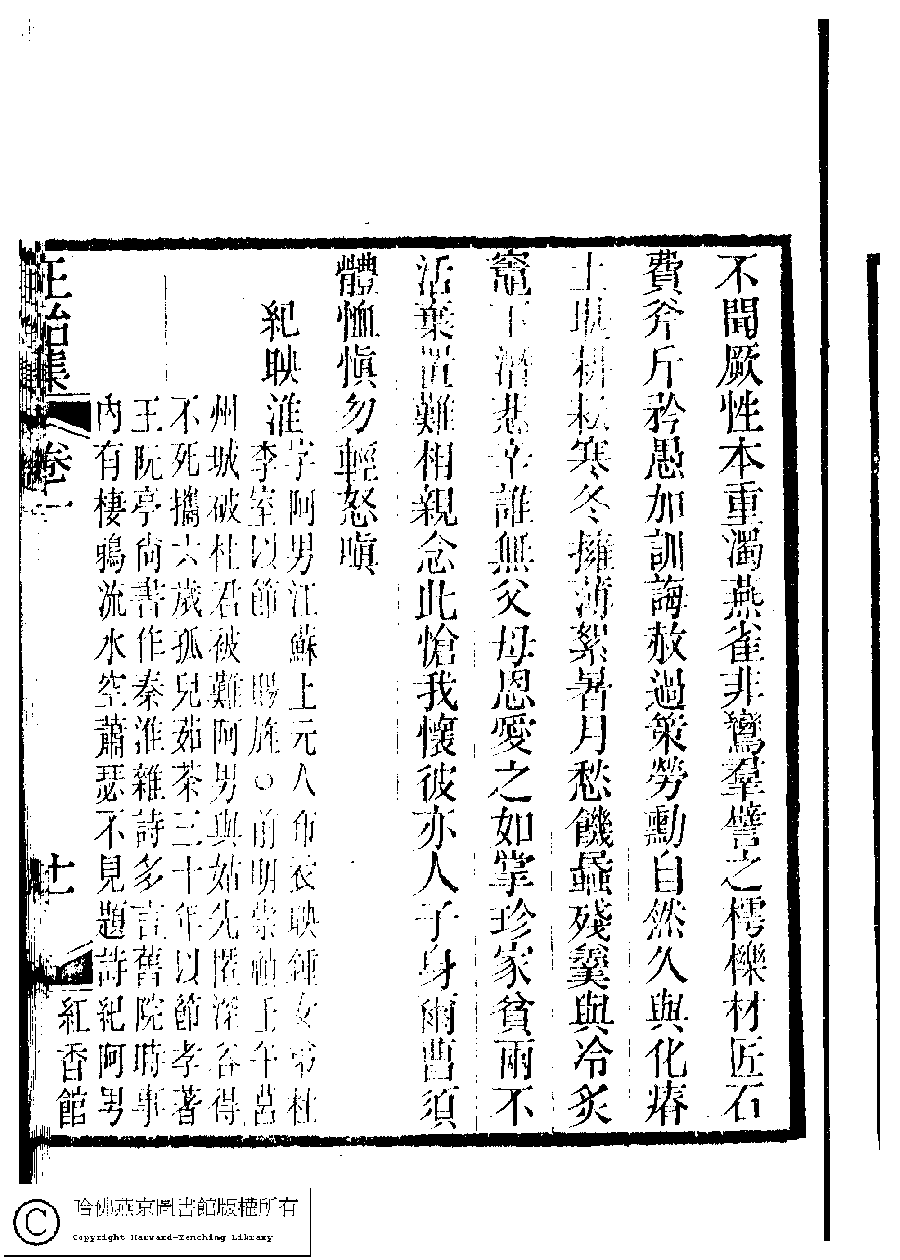 不聞厥性本重濁燕雀非鸞羣譬之樗櫟材匠石
費斧斤矜愚加訓誨赦過策勞勳自然久與化瘠
土耕耘寒冬擁薄絮暑月愁饑蟲殘羹與冷炙
竈下潛悲辛誰無父母恩愛之如掌珍家貧兩不
活棄置難相親念此愴我懷彼亦人子身爾曹須
體恤愼勿輕怒嗔
紀映淮
字阿男江蘇上元人布衣映鍾女弟杜
李室以節 賜旌○前明崇禎壬午莒
州城破杜君被難阿男與姑先匿深谷得
不死攜六歲孤兒茹荼三十年以節孝著
王阮亭尙書作秦淮雜詩多言舊院時事
內有棲鴉流水空蕭瑟不見題詩紀阿男
正始集 卷一 十一 紅香館
哈佛燕京圖書館版權所有
Copyright Harvard-Yenching Library